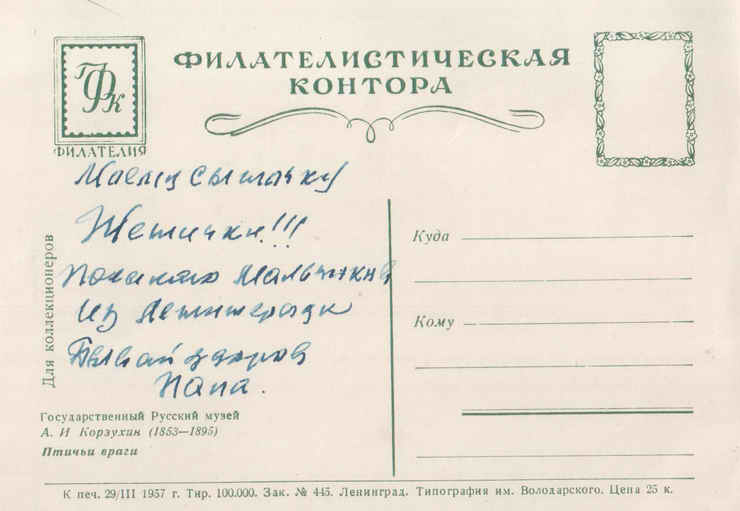 ФИЛАТЕЛИСТИЧЕСКАЯ
КОНТОРА
ГФК
ФИЛАТЕЛИЯ
Моему сыночку
Женички!!!
мальчиков
из Ленинграда
Бывай здоров
Папа.
Для коллекционеров
Куда
Кому
Государственный Русский музей
А. И Корзухин (1853—1895)
Птичьи враги
К печ. 29/III 1957 г. Тир. 100.000. Зак. № 445. Ленинград. Типография им. Володарского. Цена 25 к.